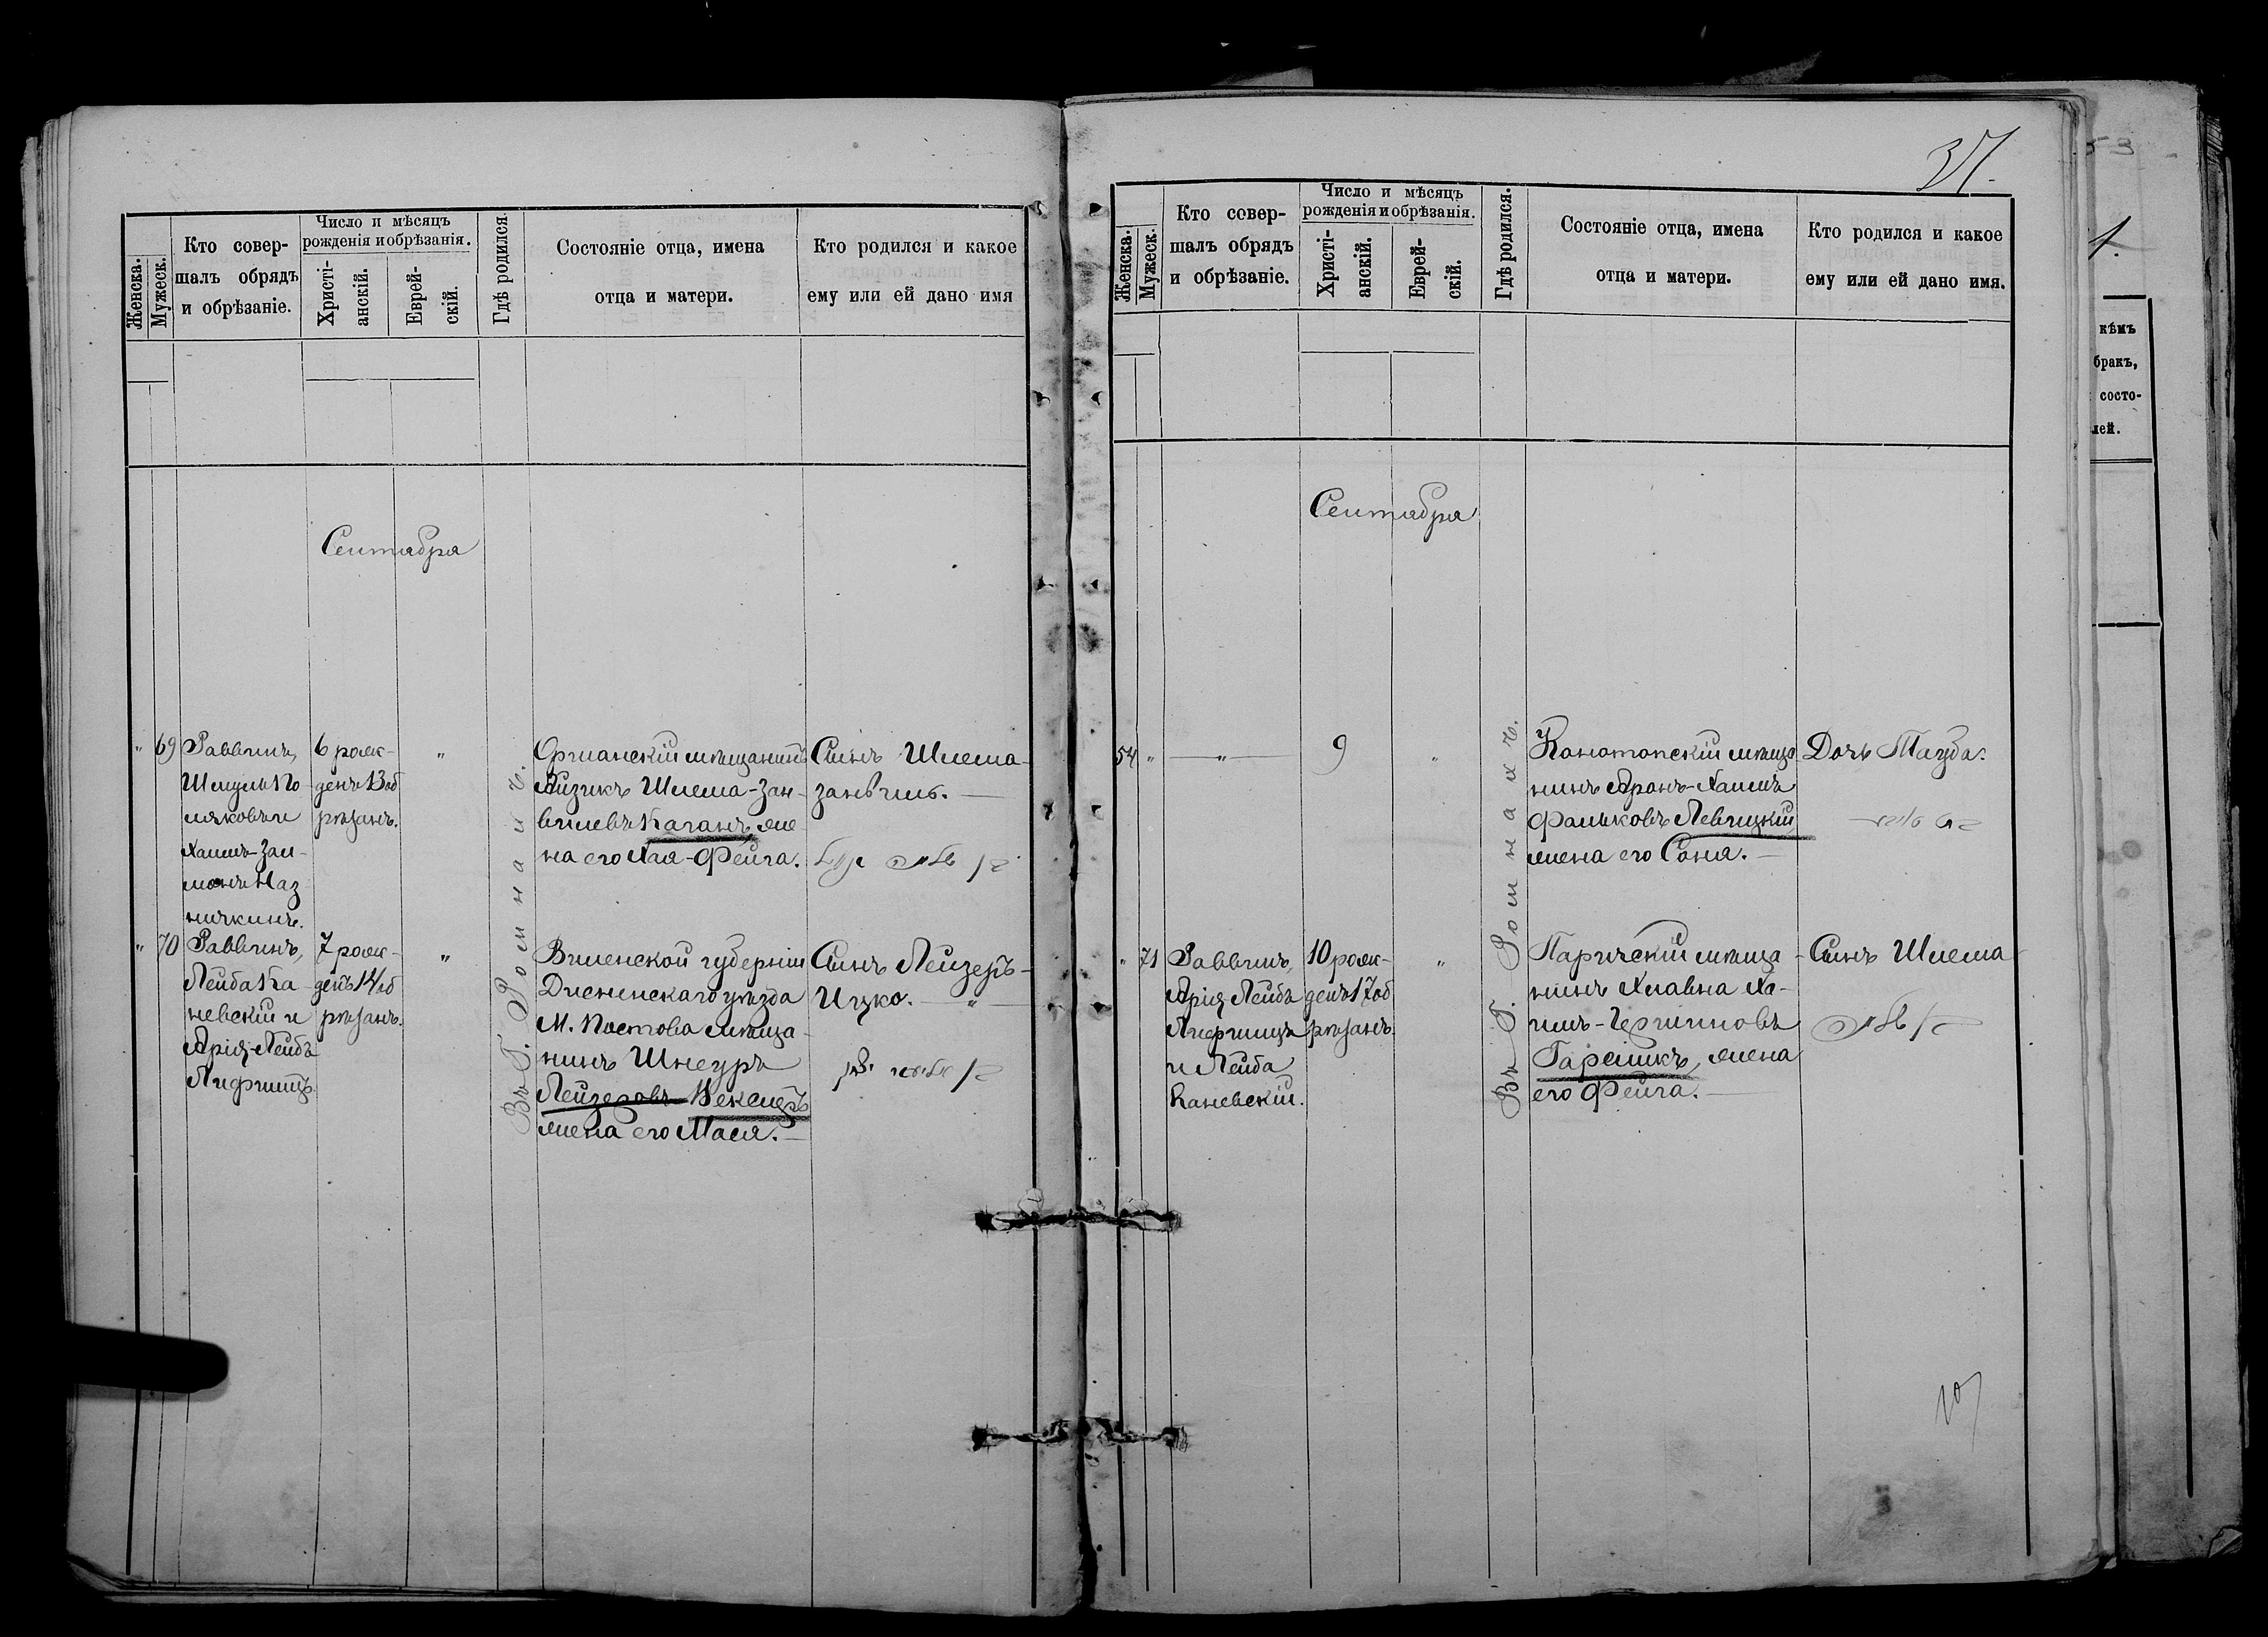 37.
Женска.
Мужеск.
Кто совер-
шалъ обрядъ
и обрѣзаніе.
Число и мѣсяцъ
рожденія и обрѣзанія.
Христі-
анскій.
Еврей-
скій.
Гдѣ родился.
Состояніе отца, имена
отца и матери.
Кто родился и какое
ему или ей дано имя
Сентября
" 69
Раввинъ,
Шмуль По
ляковъ и
Хаимъ-Зал-
манъ Каз
6 рож-
денъ 13 об
рѣзанъ.
"
Въ Г. Ромнахъ.
Оршанскій мѣщанинъ
Айзикъ Шлема-Зан-
виловъ Каганъ, же
на его Хая-Фейга.
Сынъ Шлема-
занвиль.
" 70
Раввинъ,
Лейба Ка
невскій и
Арія-Лейба
Лифшицъ
7 рож-
денъ 14 об
рѣзанъ.
"
Виленской губерніи
Дисненскаго уѣзда
М. Постово мѣща
нинъ Шнеуръ
Лейзеровъ Векслеръ
жена его Мася.
Сынъ Лейзеръ-
Ицко. "
Женска.
Мужеск.
Кто совер-
шалъ обрядъ
и обрѣзаніе.
Число и мѣсяцъ
рожденія и обрѣзанія.
Христі-
анскій.
Еврей-
скій.
Гдѣ родился.
Состояніе отца, имена
отца и матери.
Кто родился и какое
ему или ей дано имя.
Сентября
54 "
"
9
"
Въ Г. Ромнахъ.
Конотопскій мѣща
нинъ Аронъ-Хаимъ
Фальковъ Левицкій
жена его Соня.
Дочь
" 71
Раввинъ,
Арія-Лейба
Лифшицъ
и Лейба
Каневскій.
10 рож-
денъ 17 об
рѣзанъ.
"
Паричскій мѣща
нинъ Хлавна Ха-
имъ-
жена
его Фейга.
Сынъ Шлема
кѣмъ
бракъ,
состо-
лей.